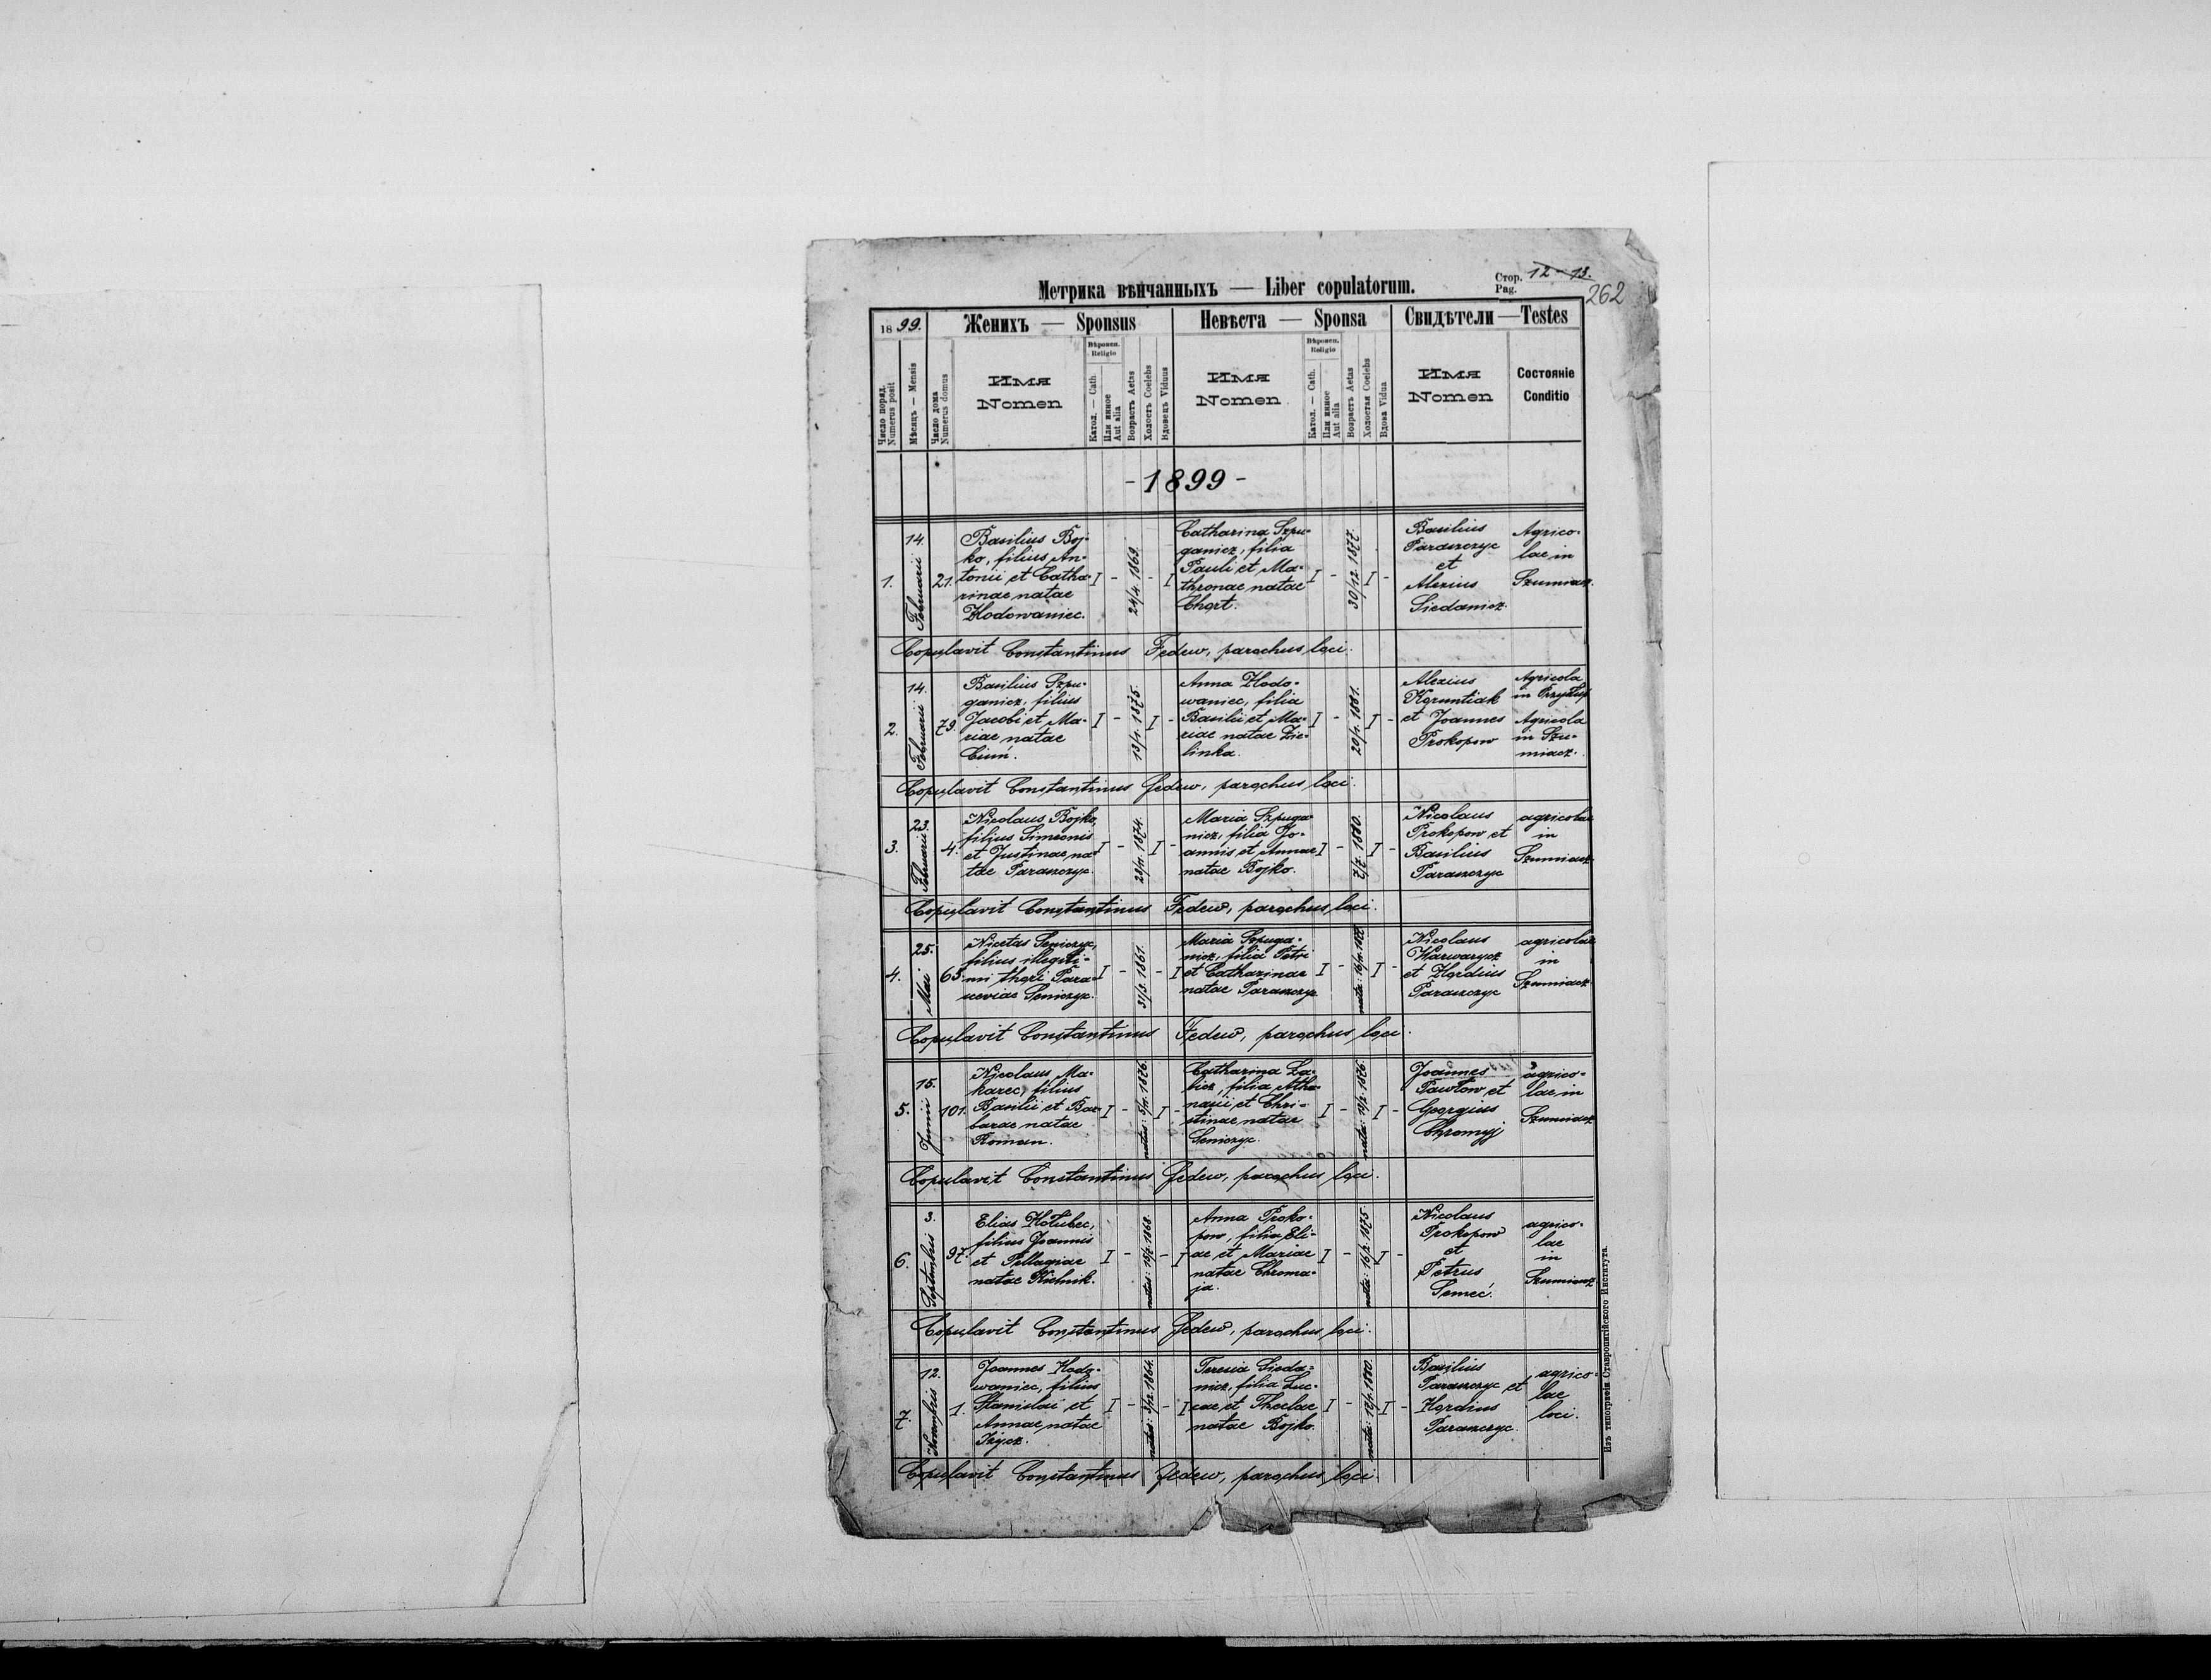 Метрика вѣнчанныхъ — Liber copulatorum.
Стор. 12-13.
Pag.
262
1899.
Женихъ — Sponsus
Невѣста — Sponsa
Свидѣтели — Testes
Число поряд.
Numerus posit
Мѣсяцъ — Mensis
Число дома
Numerus domus
Имя
Nomen
Вѣроисп.
Religio
Катол. — Cath.
Или инное
Aut alia
Возрастъ Aetas
Холостъ Coelebs
Вдовецъ Viduus
Имя
Nomen
Вѣроисп.
Religio
Катол. — Cath.
Или инное
Aut alia
Возрастъ Aetas
Холостая Coelebs
Вдова Vidua
Имя
Nomen
Состояніе
Conditio
- 1899 -
1.
14.
Februarii
21.
Basilius Boj-
ko, filius An-
tonii et Catha-
rinae natae
Hodowaniec.
I - 24/4. 1869. - I
Catharina Szpu-
ganicz, filia
Pauli et Ma-
thronae natae
Chort.
I - 30/12. 1877. I -
Basilius
Paraszczyc
et
Alexius
Siedanicz.
Agrico-
lae in
Szumiacz.
Copulavit Constantinus Fedew, parochus loci.
2.
14.
Februarii
79.
Basilius Szpu-
ganicz, filius
Jacobi et Ma-
riae natae
I - 13/1. 1875. I -
Anna Hodo-
waniec, filia
Basilii et Ma-
riae natae Zie-
linka.
I - 20/1. 1881. I -
Alexius
et Joannes
Prokopow
Agricola
in
Agricola
in Szu-
miacz.
Copulavit Constantinus Fedew, parochus loci.
3.
23.
Februarii
4.
Nicolaus Bojko,
filius Simeonis
et Justinae na-
tae Paraszczyc.
I - 1874. I -
Maria Szpuga-
nicz, filia Jo-
annis et Annae
natae Bojko.
I - 7/7. 1880. I -
Nicolaus
Prokopow et
Basilius
Paraszczyc
agricolae
in
Szumiacz
Copulavit Constantinus Fedew, parochus loci.
4.
25.
Mai
63.
Nicetas Seniczyc,
filius illegiti-
mi thori Para-
sceviae Seniczyc.
I - 31/3. 1861. - I
Maria Szpuga-
nicz, filia Petri
et Catharinae
natae Paraszczyc
I - nata: I -
Nicolaus
Warwarycz
et Hordius
Paraszczyc
agricolae
in
Szumiacz
Copulavit Constantinus Fedew, parochus loci.
5.
15.
Junii
101.
Nicolaus Ma-
karec, filius
Basilii et Bar-
barae natae
Roman.
I - natus: 1876. I -
Catharina
filia Atha-
nasii et Chri-
stinae natae
Seniczyc.
I - nata: 1876. I -
Joannes
Pawłow et
Georgius
Chromyj
agrico-
lae in
Szumiacz
Copulavit Constantinus Fedew, parochus loci.
6.
3.
Septembris
97.
Elias Hołubec,
filius Joannis
et Pellagiae
natae
I - natus: 1868. - I
Anna Proko-
pow, filia Eli-
ae et Mariae
natae Chroma-
ja.
I - nata: 1875. I -
Nicolaus
Prokopow
et
Petrus
Semeć.
agrico-
lae
in
Szumiacz
Copulavit Constantinus Fedew, parochus loci.
7.
12.
Novembris
1.
Joannes Hodo-
waniec, filius
Stanislai et
Annae natae
I - natus: 1864. - I
Teresia Sieda-
nicz, filia Luc-
cae et Theclae
natae Bojko.
I - nata: 1880. I -
Basilius
Paraszczyc et
Hordius
Paraszczyc.
agrico-
lae
loci.
Copulavit Constantinus Fedew, parochus loci.
Изъ типографіи Ставропигійского Института.